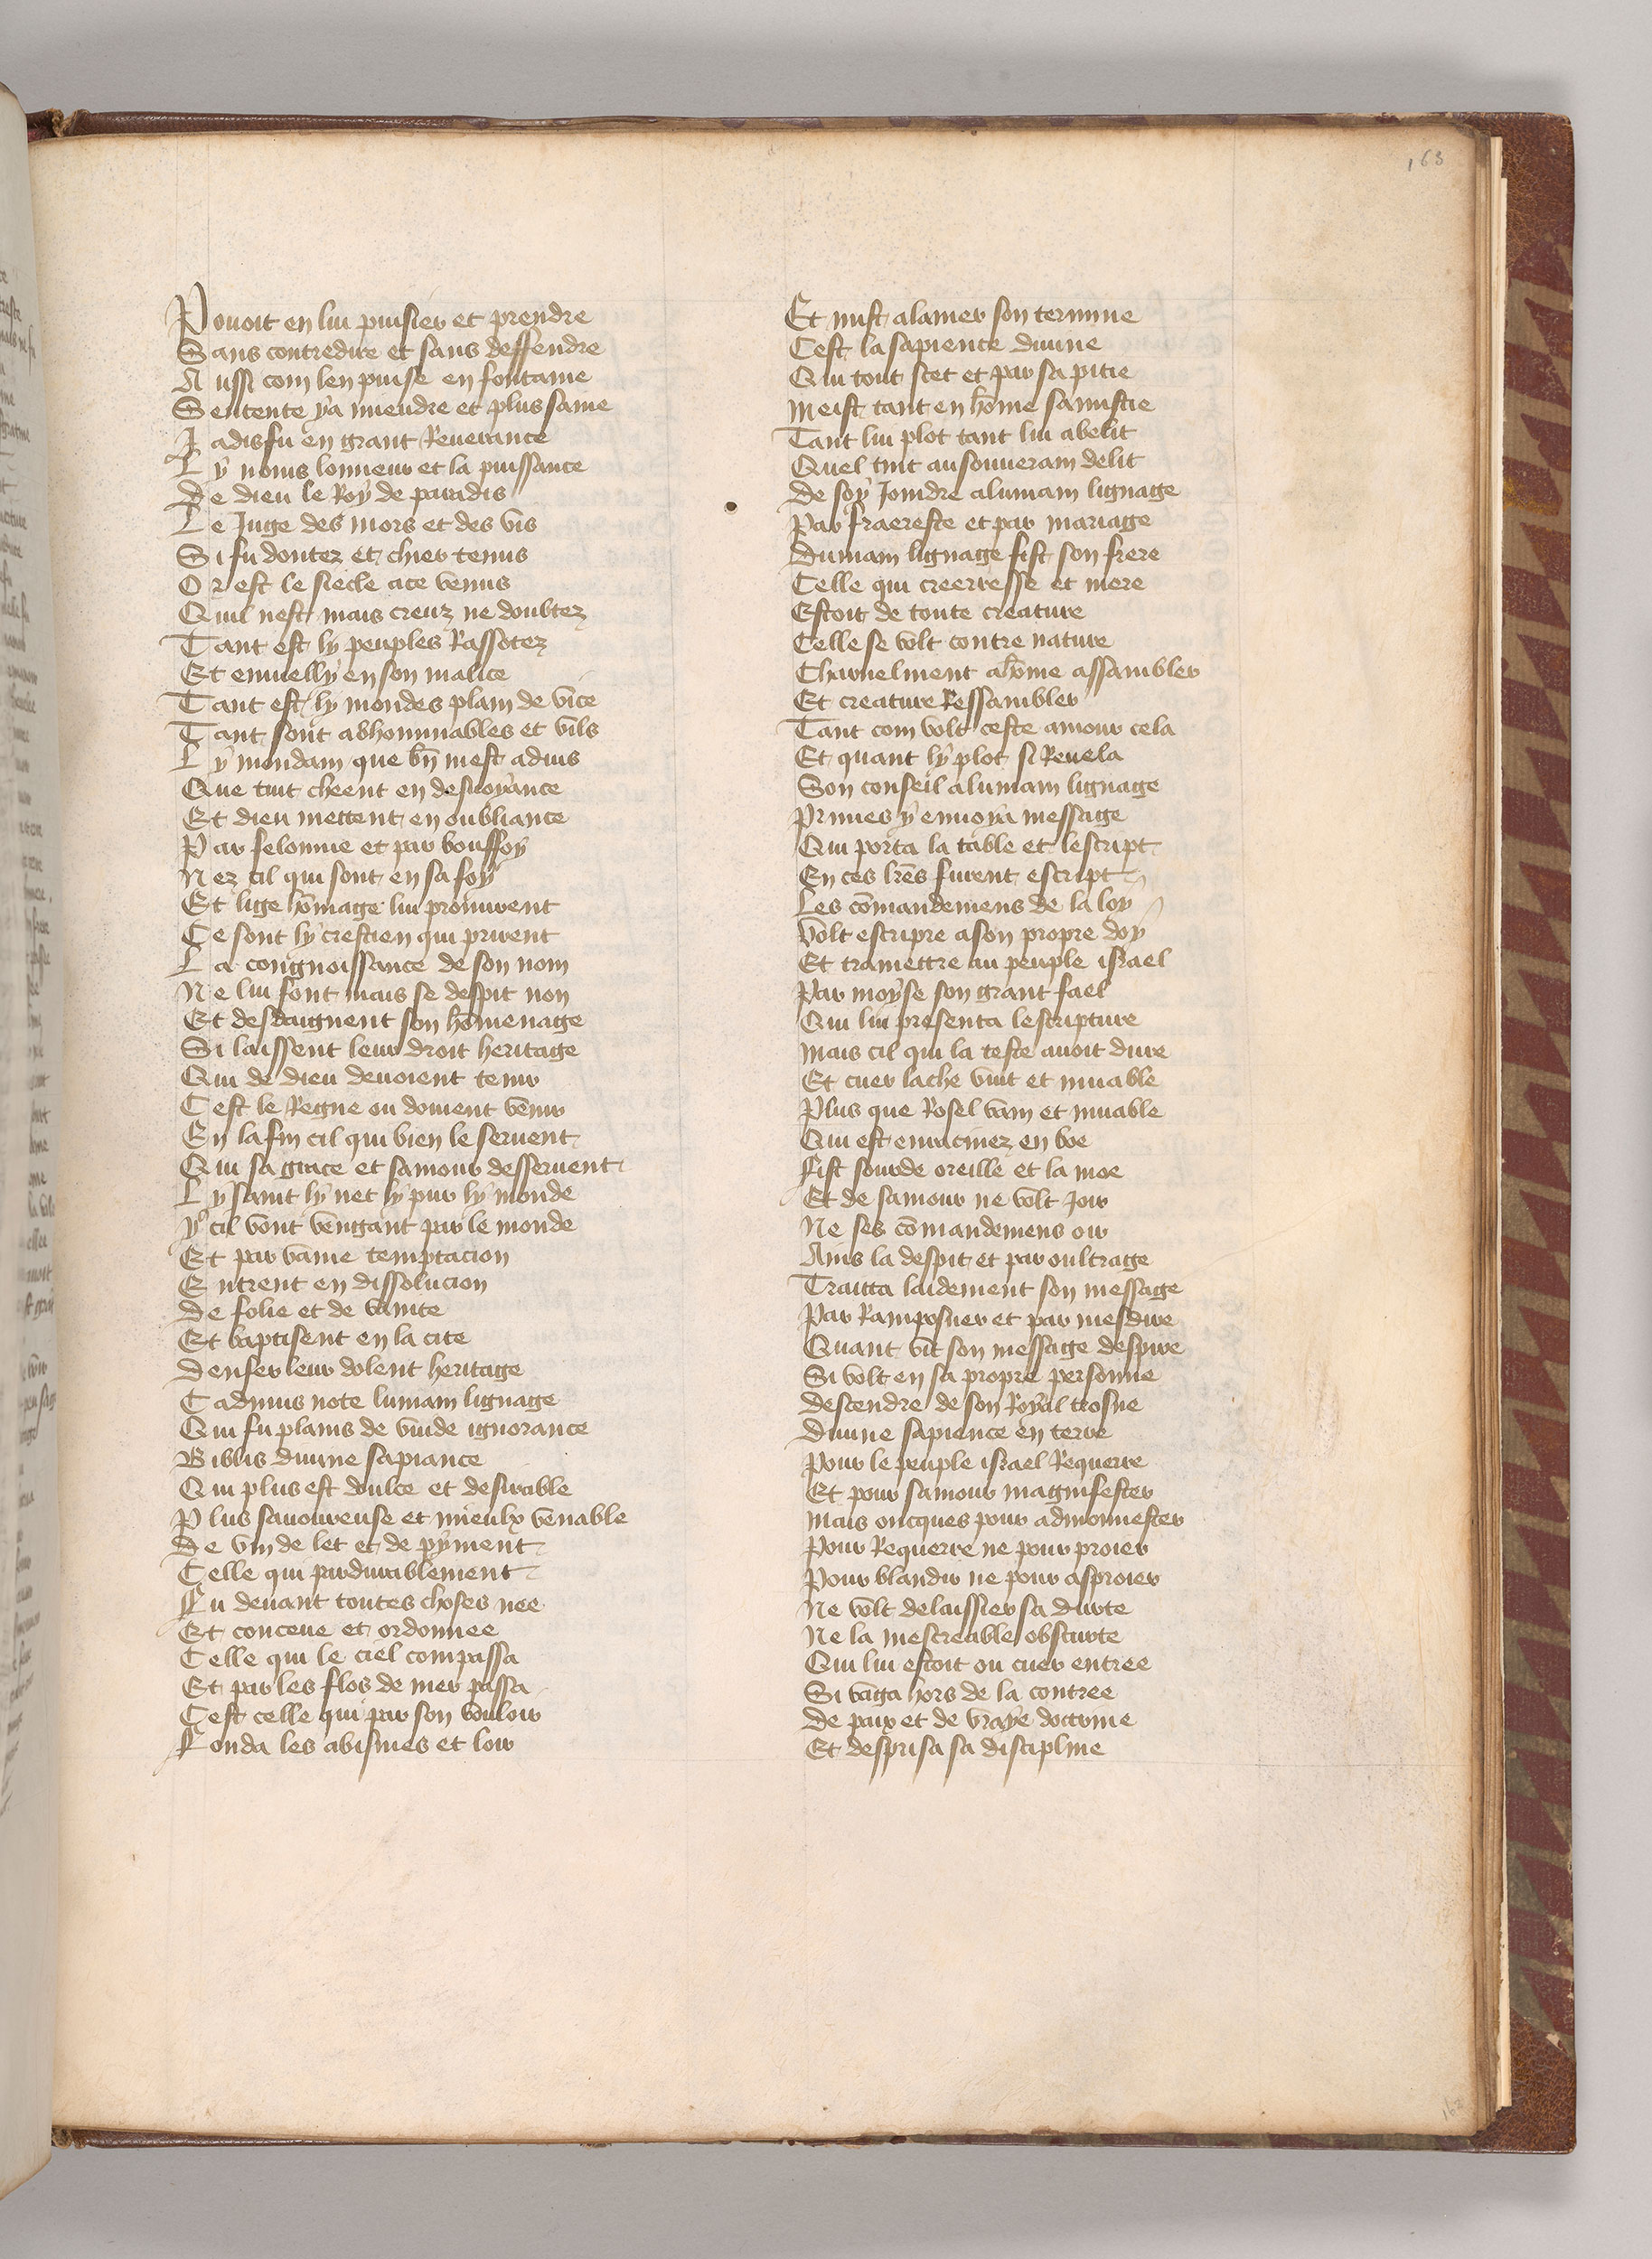 163
Pouoit en lui puisier et prendre
Sans contredire et sans deffendre
Aussi com len puise en fontaine
Sentente ya miendre et plus saine
Jadis fu en grant Reuerance
Ly noms lonneur et la puissance
De dieu le Roy de paradis
Le Juge des mors et des vis
Si fu doutez et chier tenus
Or est le siecle a ce venus
Quil nest mais creuz ne doubtez
Tant est ly peuples Rassotez
Et enuielly en son malice
Tant est ly mondes plain de vice
Tant sont abhominables et vils
Ly mondain que bn mest aduis
Que tuit cheent en desuoyance
Et dieu mettent en oubliance
Par felonnie et par bouffoy
Nez cil qui sont en sa foy
Et lige hōmage lui promirent
Ce sont ly crestien qui prirent
La congnoissance de son nom
Ne lui font mais se despit non
Et desdaignent son hōmenage
Si laissent leur droit heritage
Qui de dieu deuoient tenir
Cest le Regne ou doiuent venir
En la fin cil qui bien le seruent
Qui sa grace et samour desseruent
Ly saint ly net ly pur ly monde
Yº cil vont vengant par le monde
Et par vaine temptacion
Entrent en dissolucion
De folie et de vanite
Et baptisent en la cite
Denfer leur dolent heritage
Cadmus note lumain lignage
Qui fu plains de vuide ignorance
Biblis diuine sapiance
Qui plus est doulce et desirable
Plus sauoureuse et mieulx venable
De vin de let et de pyment
Celle qui pardurablement
Fu deuant toutes choses nee
Et conceue et ordonnee
Celle qui le ciel compassa
Et par les flos de mer passa
Cest celle qui par son vouloir
Fonda les abismes et loir
Et mist a la mer son termine
Cest la sapience diuine
Qui tout scet et par sa pitie
Meist tant en hōme samistie
Tant lui plot tant lui abelit
Quel tint au souuerain delit
De soy Joindre a lumain lignage
Par fraereste et par mariage
Dumain lignage fist son frere
Celle qui creerresse et mere
Estoit de toute creature
Celle se volt contre nature
Charnelment a hōme assambler
Et creature Ressambler
Tant com volt ceste amour cela
Et quant ly plot si Reuela
Son conseil a lumain lignage
Primes y enuoya message
Qui porta la table et lescript
En ces lr̄es furent escript
Les cōmandemens de la loy
Volt escripre a son propre doy
Et tramettre au peuple israel
Par moyse son grant fael
Qui lui presenta lescripture
Mais cil qui la teste auoit dure
Et cuer lache vuit et muable
Plus que Rosel vain et muable
Qui est enracinez en boe
Fist sourde oreille et la moe
Et de samour ne volt Joir
Ne ses cōmandemens oir
Ains la despit et par oultrage
Traitta laidement son message
Par Ramposner et par mesdire
Quant vit son message despire
Si volt en sa propre personne
Descendre de son Royal trosne
Diuine sapience en terre
Pour le peuple israel Requerre
Et pour samour magnifester
Mais oncques pour admonnester
Pour Requerre ne pour proier
Pour blandir ne pour asproier
Ne volt delaissier sa durte
Ne la mescreable obscurte
Qui lui estoit ou cuer entree
Si vaga hors de la contree
De paix et de vraye doctrine
Et desprisa sa discipline